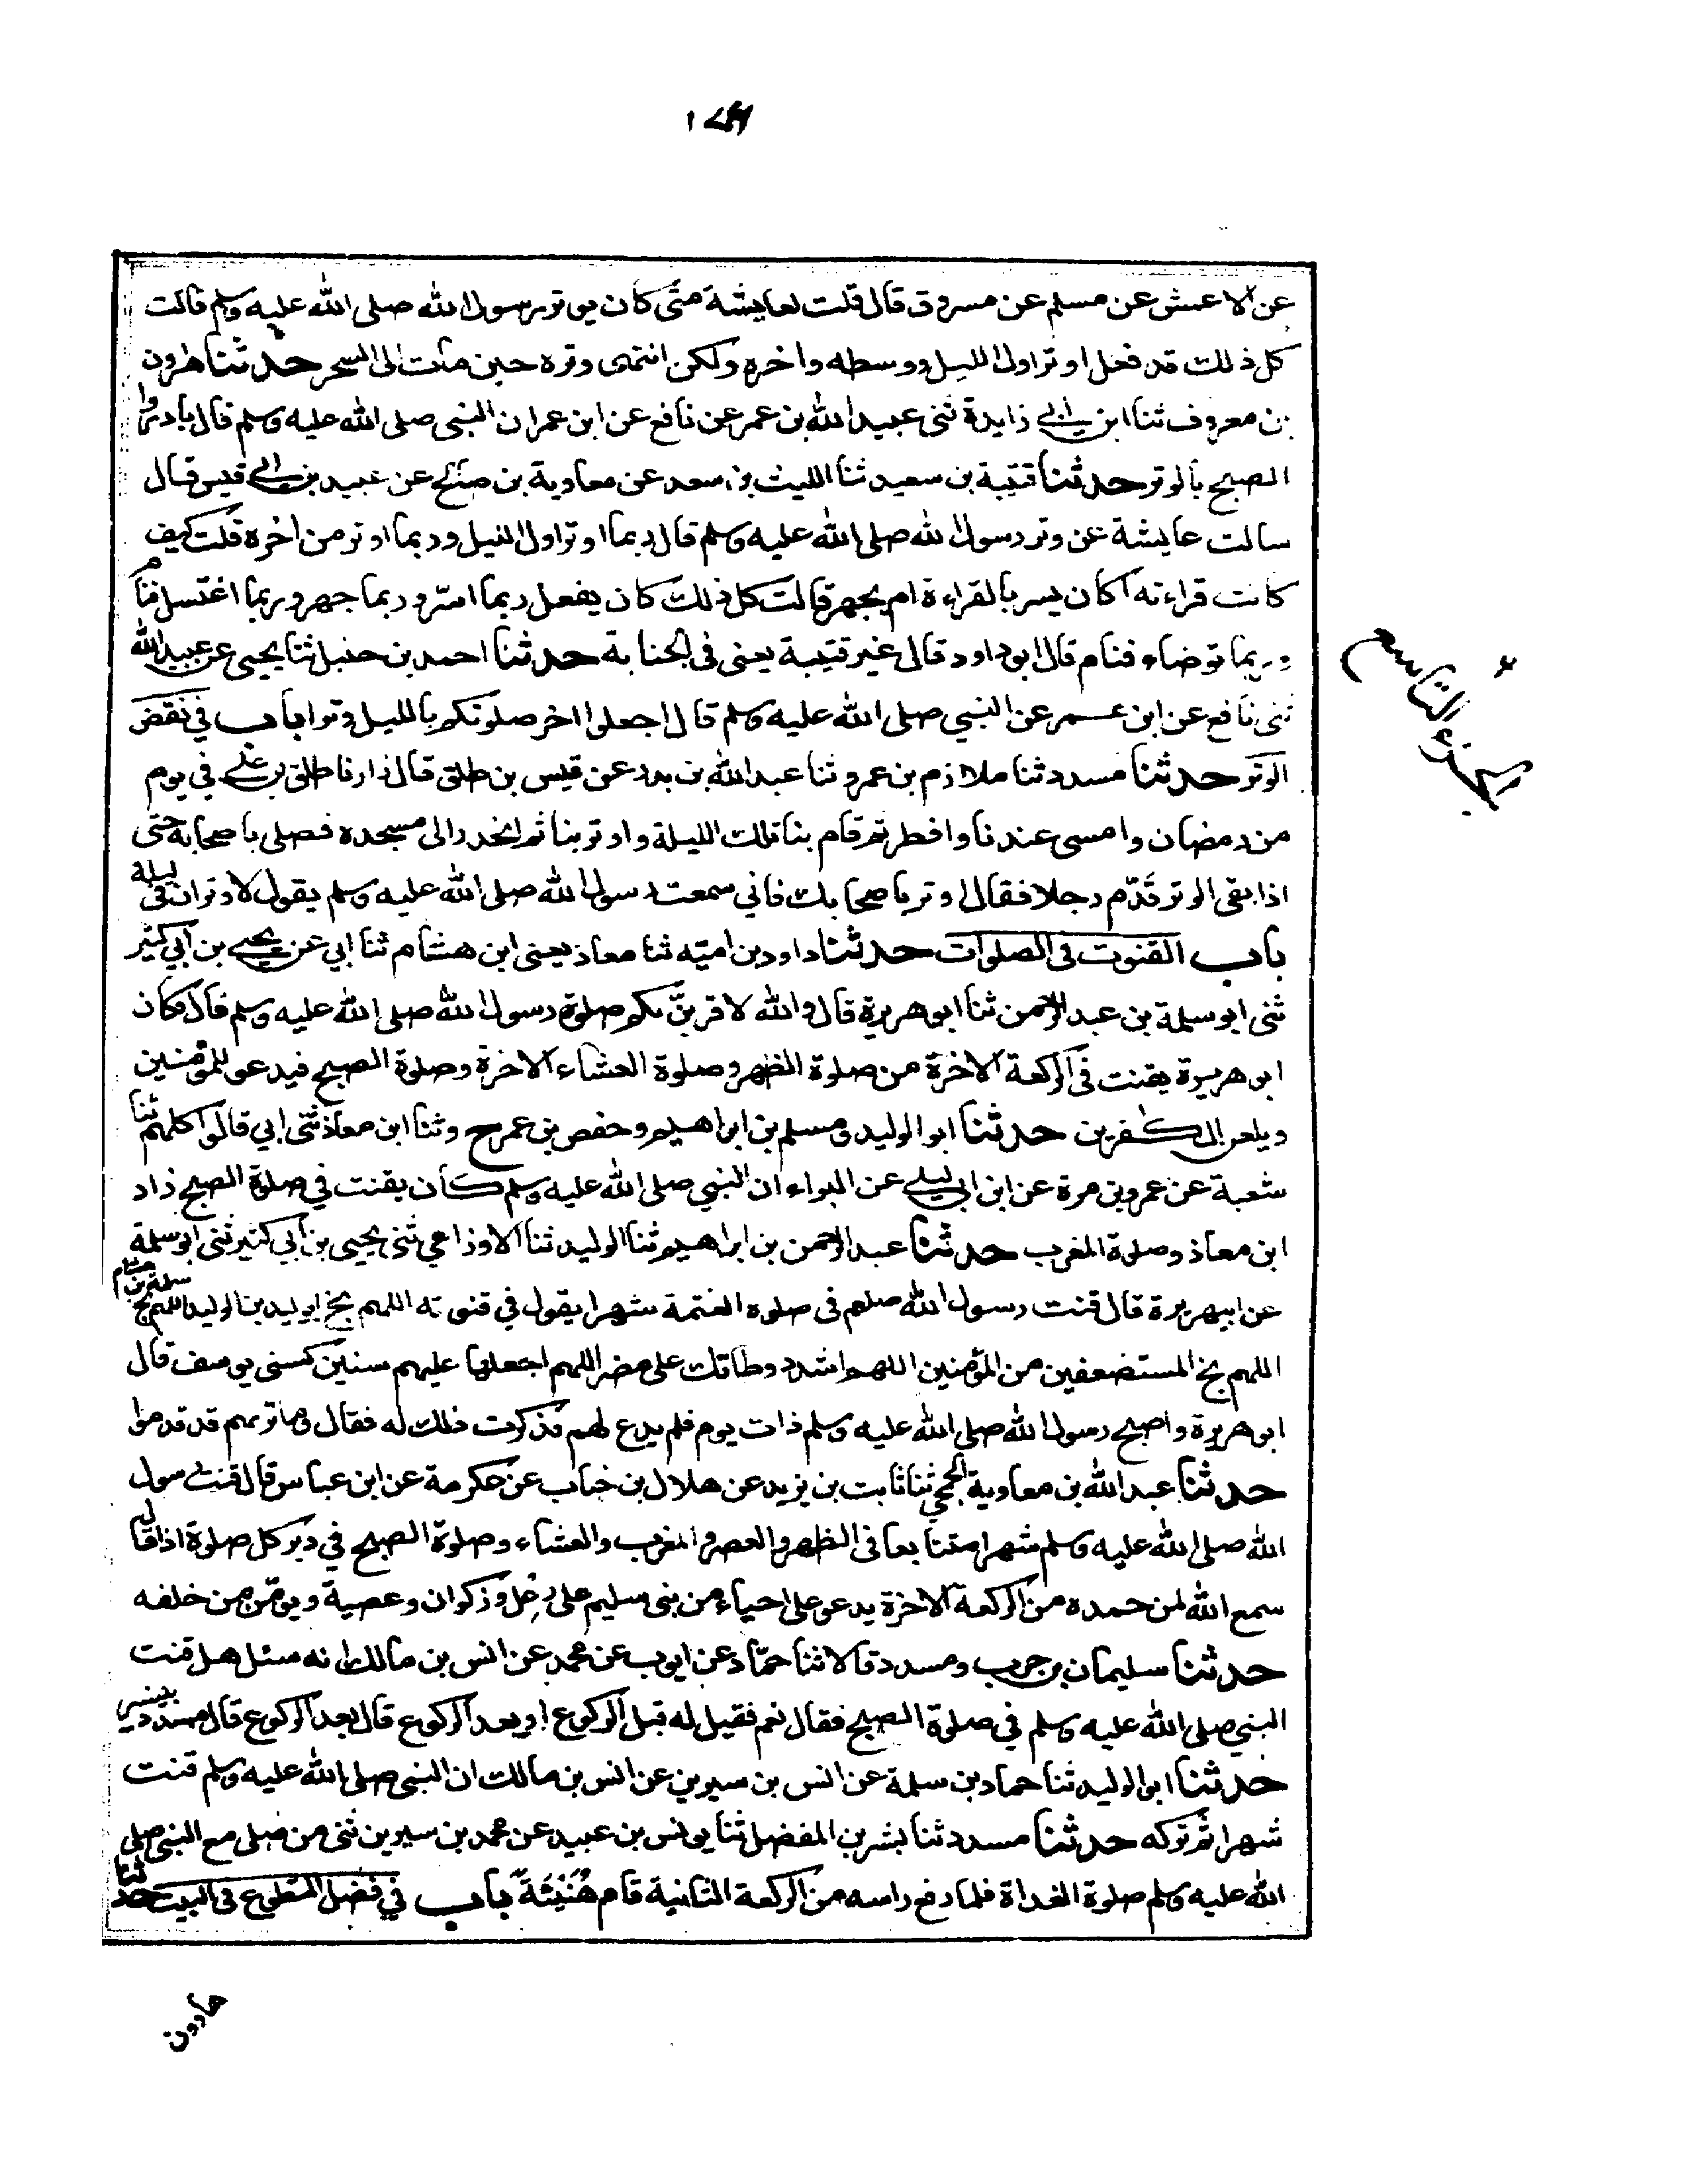 عن الاعمش عن مسلم عن مسروق قال قلت لعايشة متى كان يوتر رسول الله صلى الله عليه وسلم قالت
كل ذلك قد فعل اوتر اول الليل ووسطه واخره ولكن انتهى وتره حين مات الى السحر حدثنا هرون
بن معروف ثنا ابن ابي زايدة ثنى عبيد الله بن عمر عن نافع عن ابن عمر ان النبي صلى الله عليه وسلم قال بادروا
الصبح بالوتر حدثنا قتيبة بن سعيد ثنا الليث بن سعد عن معاوية بن صالح عن عبيد بن ابي قيس قال
سالت عايشة عن وتر رسول الله صلى الله عليه وسلم قال ربما اوتر اول الليل وربما اوتر من اخره قلت كيف
كانت قراءته اكان يسر بالقراءة ام يجهر قالت كل ذلك كان يفعل ربما اسر وربما جهر وربما اغتسل فنام
وربما توضاء فنام قال ابو داود قال غير قتيبة يعنى فى الجنابة حدثنا احمد بن حنبل ثنا يحيى عن عبيد الله
ثنى نافع عن ابن عمر عن النبي صلى الله عليه وسلم قال اجعلوا اخر صلوتكم بالليل وترا باب في نقض
الوتر حدثنا مسدد ثنا ملازم بن عمرو ثنا عبد الله بن بدر عن قيس بن طلق قال زارنا طلق بن علي في يوم
من رمضان وامسى عندنا وافطر ثم قام بنا تلك الليلة واوتر بنا ثم انحدر الى مسجده فصلى باصحابه حتى
اذا بقى الوتر قدّم رجلا فقال اوتر باصحابك فاني سمعت رسول الله صلى الله عليه وسلم يقول لا وتران فى ليلة
باب القنوت فى الصلوات حدثنا داود بن اميّه ثنا معاذ يعنى ابن هشام ثنا ابي عن يحيى بن ابي كثير
ثنى ابو سلمة بن عبد الرحمن ثنا ابو هريرة قال والله لاقربنّ بكم صلوة رسول الله صلى الله عليه وسلم قال فكان
ابو هريرة يقنت فى الركعة الاخرة من صلوة الظهر وصلوة العشاء الاخرة وصلوة الصبح فيدعو للمؤمنين
ويلعن الكفرين حدثنا ابو الوليد ومسلم بن ابراهيم وحفص بن عمر ح وثنا ابن معاذ ثنى ابي قالوا كلهم ثنا
شعبة عن عمرو بن مرة عن ابن ابي ليلى عن البراء ان النبي صلى الله عليه وسلم كان يقنت في صلوة الصبح زاد
ابن معاذ وصلوة المغرب حدثنا عبد الرحمن بن ابراهيم ثنا الوليد ثنا الاوزاعي ثنى يحيى بن ابي كثير ثنى ابو سلمة
عن ابيهريرة قال قنت رسول الله صلعم فى صلوة العتمة شهرا يقول في قنوته اللهم نج الوليد بن الوليد اللهم نج سلمة بن هشام
اللهم نج المستضعفين من المؤمنين اللهم اشدد وطاتك على مضر اللهم اجعلها عليهم سنين كسنى يوسف قال
ابو هريرة واصبح رسول الله صلى الله عليه وسلم ذات يوم فلم يدع لهم فذكرت ذلك له فقال وما تريهم قد قدموا
حدثنا عبد الله بن معاوية الجمحي ثنا ثابت بن يزيد عن هلال بن خباب عن عكرمة عن ابن عباس قال قنت رسول
الله صلى الله عليه وسلم شهرا متتابعا فى الظهر والعصر والمغرب والعشاء وصلوة الصبح في دبر كل صلوة اذا قال
سمع الله لمن حمده من الركعة الاخرة يدعو على احياء من بنى سليم على رعل وذكوان وعصية ويومّن من خلفه
حدثنا سليمان بن حرب ومسدد قالا ثنا حمّاد عن ايوب عن محمد عن انس بن مالك انه سئل هل قنت
النبي صلى الله عليه وسلم في صلوة الصبح فقال نعم فقيل له قبل الركوع او بعد الركوع قال بعد الركوع قال مسدد بيسير
حدثنا ابو الوليد ثنا حماد بن سلمة عن انس بن سيرين عن انس بن مالك ان النبي صلى الله عليه وسلم قنت
شهرا ثم تركه حدثنا مسدد ثنا بشر بن المفضل ثنا يونس بن عبيد عن محمد بن سيرين ثنى من صلى مع النبي صلى
الله عليه وسلم صلوة الغداة فلما رفع راسه من الركعة الثانية قام هُنَيْئَةً باب في فضل التطوع فى البيت حدثنا
الجزء التاسع
هارون